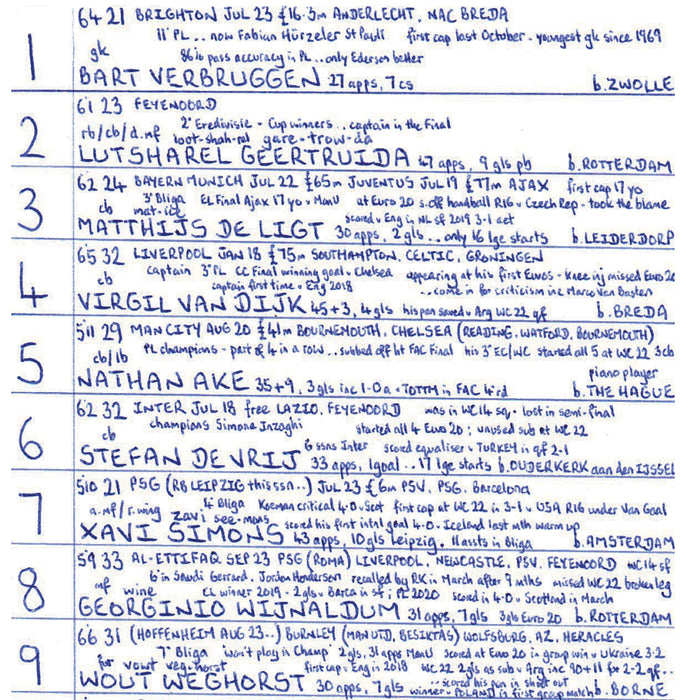 64 21 BRIGHTON JUL 23 £16.3m ANDERLECHT, NAC BREDA
11' PL .. now Fabian Hürzeler St Pauli first cap last October - youngest gk since 1969
1 gk
86% pass accuracy in PL .. only Ederson better
BART VERBRUGGEN 27 apps, 7 cs b. ZWOLLE
61 23 FEYENOORD
2 rb/cb/d.mf 2' Eredivisie - Cup winners .. captain in the Final
loot-shah-rel gare-trow-da
LUTSHAREL GEERTRUIDA 47 apps, 9 gls pb b. ROTTERDAM
62 24 BAYERN MUNICH JUL 22 £65m JUVENTUS JUL 19 £77m AJAX first cap 17 yo
3 cb 3' Bliga EL Final Ajax 17 yo v ManU at Euro 20 s.off handball R16 v Czech Rep - took the blame
scored v Eng in NL sf 2019 3-1 aet
MATTHIJS DE LIGT 30 apps, 2 gls .. only 16 lge starts b. LEIDERDORP
65 32 LIVERPOOL JAN 18 £75m SOUTHAMPTON, CELTIC, GRONINGEN
4 cb captain 3' PL CC Final winning goal v Chelsea appearing at his first Euros - knee inj missed Euro 20
captain first time v Eng 2018 .. come in for criticism inc Marco Van Basten
VIRGIL VAN DIJK 45+3, 4 gls his pen saved v Arg WC 22 qf b. BREDA
511 29 MAN CITY AUG 20 £41m BOURNEMOUTH, CHELSEA (READING, WATFORD, BOURNEMOUTH)
5 cb/lb PL champions - part of 4 in a row .. subbed off ht FAC Final his 3' EC/WC started all 5 at WC 22 3cb
piano player
NATHAN AKE 35+9, 3 gls inc 1-0 a v TOTTM in FAC 4'rd b. THE HAGUE
62 32 INTER JUL 18 free LAZIO, FEYENOORD was in WC 14 sq - lost in semi-final
6 cb champions Simone Inzaghi started all 4 Euro 20; unused sub at WC 22
6 ssns Inter scored equaliser v TURKEY in qf 2-1
STEFAN DE VRIJ 33 apps, 1 goal .. 17 lge starts b. OUDERKERK aan den IJSSEL
510 21 PSG (RB LEIPZIG this ssn ..) JUL 23 £6m PSV, PSG, Barcelona
7 a.mf/r.wing 4' Bliga Koeman critical 4-0 v Scot first cap at WC 22 in 3-1 v USA R16 under Van Gaal
zavi see-mons scored his first intnl goal 4-0 v Iceland last mth warm up
XAVI SIMONS 43 apps, 10 gls Leipzig. 11 assts in Bliga b. AMSTERDAM
59 33 AL-ETTIFAQ SEP 23 PSG (ROMA) LIVERPOOL, NEWCASTLE, PSV, FEYENOORD WC 14 sf
8 mf 6' in Saudi Gerrard, Jordan Henderson recalled by RK in March after 9 mths missed WC 22 broken leg
wine CL winner 2019 - 2 gls v Barca in sf; PL 2020 scored in 4-0 v Scotland in March
GEORGINIO WIJNALDUM 31 apps, 7 gls 3 gls Euro 20 b. ROTTERDAM
66 31 (HOFFENHEIM AUG 23 ..) BURNLEY (MAN UTD, BESIKTAS) WOLFSBURG, AZ, HERACLES
9 for 7' Bliga 'won't play in Champ' 2 gls, 31 apps ManU scored at Euro 20 in group win v Ukraine 3-2
vowt veg-horst first cap v Eng in 2018 WC 22 2 gls as sub v Arg inc 90+11 for 2-2 qf ..
.. scored his pen in shoot out
WOUT WEGHORST 30 apps, 7 gls winner v POLAND in first group match b. BORNE